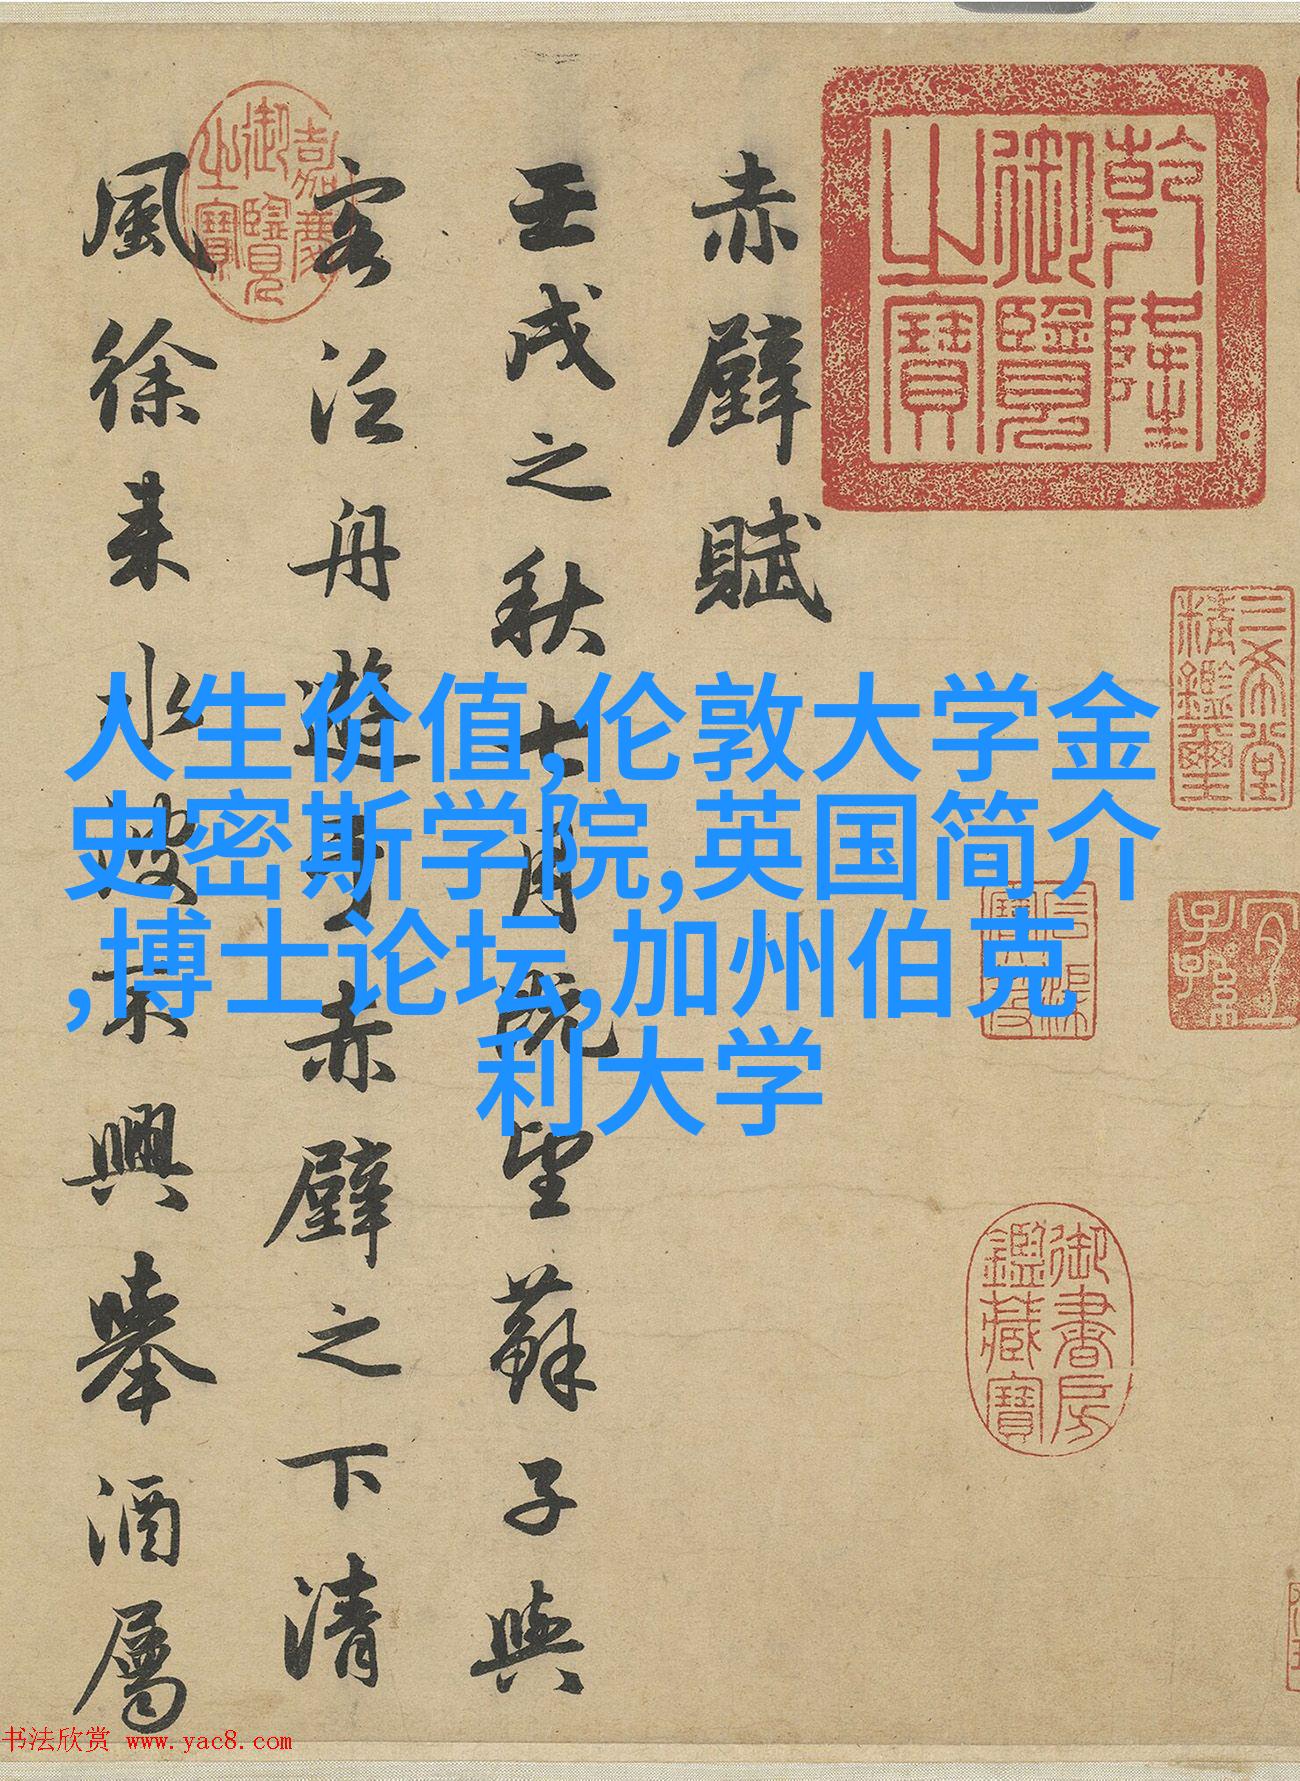 赤壁賦
壬戌之秋七月既望蘇子與
客泛舟遊於赤壁之下清
風徐来水波不興舉酒屬
乾隆御覽之寶
嘉慶御覽之寶
三希堂精鑑璽
宜子孫
御書房鑑藏寶
人生价值,伦敦大学金
史密斯学院,英国简介
,博士论坛,加州伯克
利大学
书法欣赏 www.yac8.com